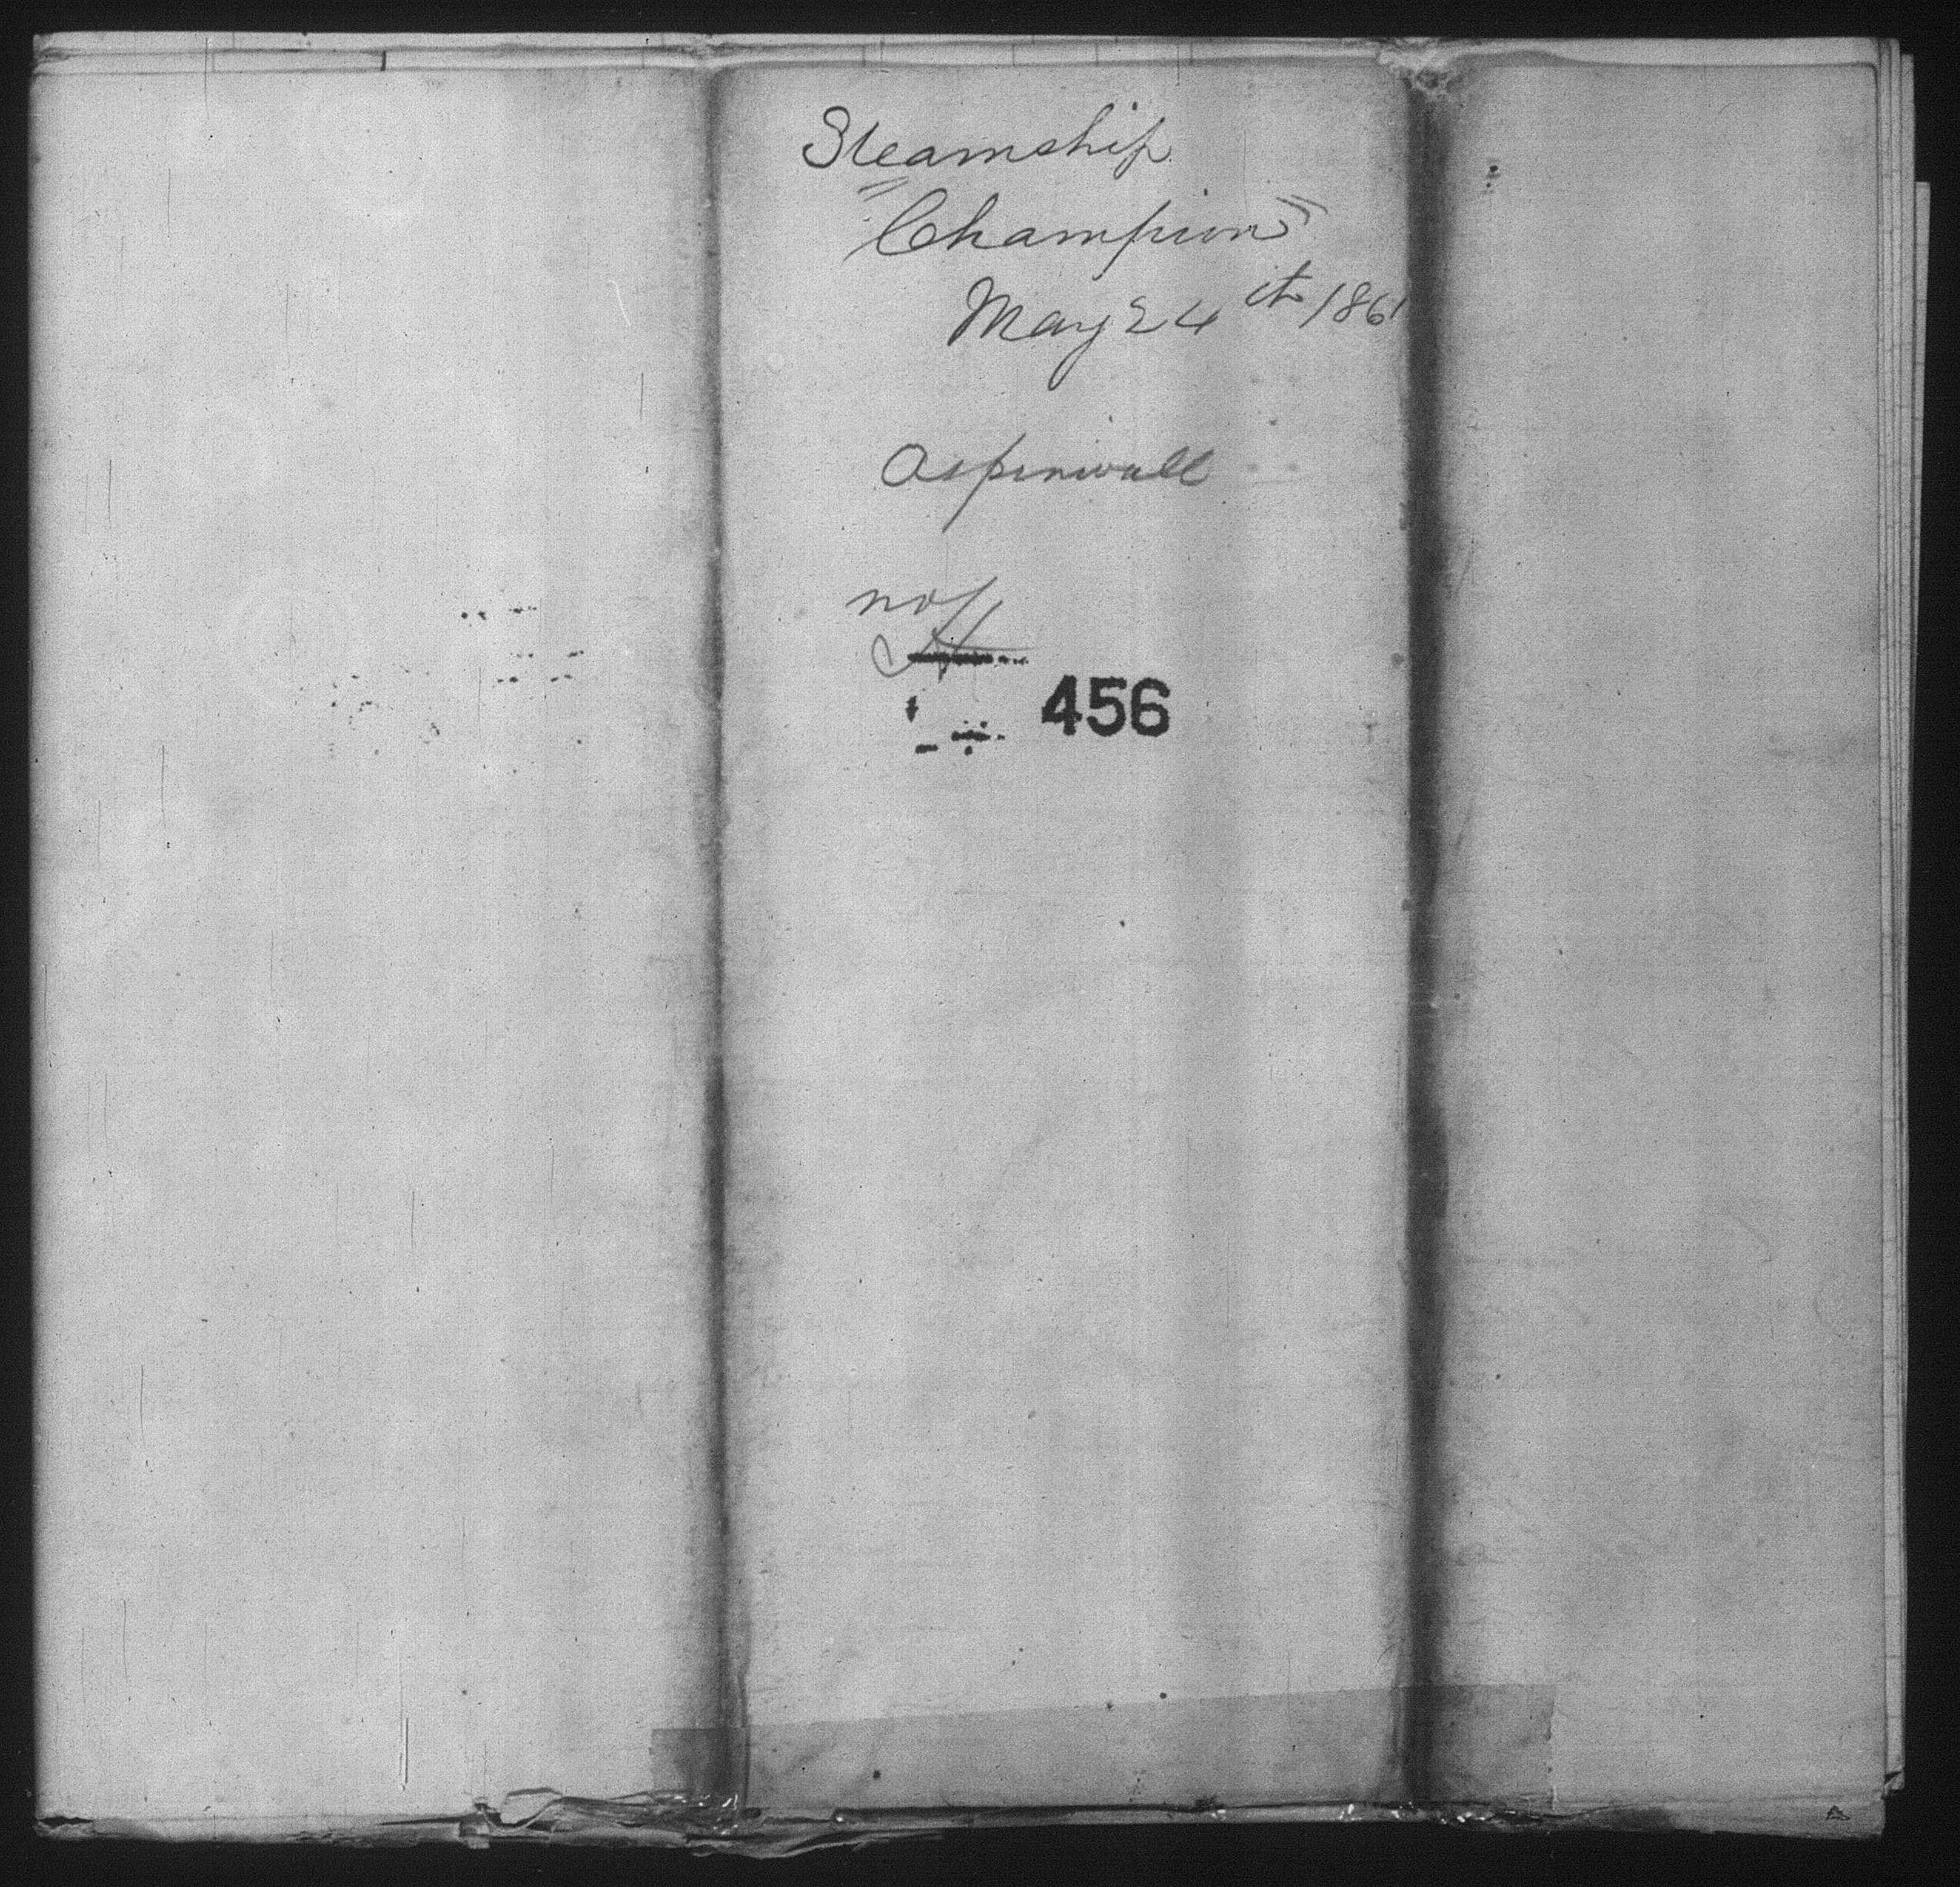 Steamship
"Champion"
May 24th 1861
Aspinwall
456